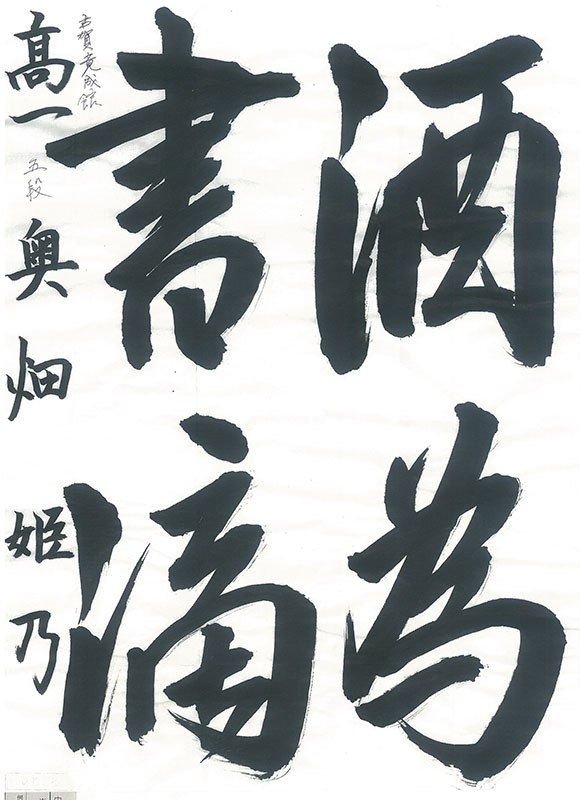 酒為
書滴
古賀竟成館
髙一 五段 奥畑 姫乃